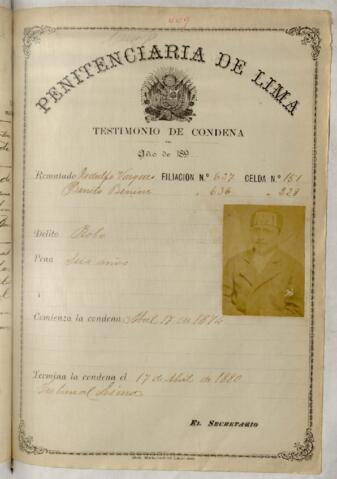 409
PENITENCIARIA DE LIMA
TESTIMONIO DE CONDENA
Año de 189
Rematado Rodolfo Vasquez FILIACION N.º 627 CELDA N.º 151
Benito 636 228
Delito Robo
Pena Seis años
Comienza la condena Abril 17 de 1874
Termina la condena el 17 de Abril de 1880
Tribunal
EL SECRETARIO